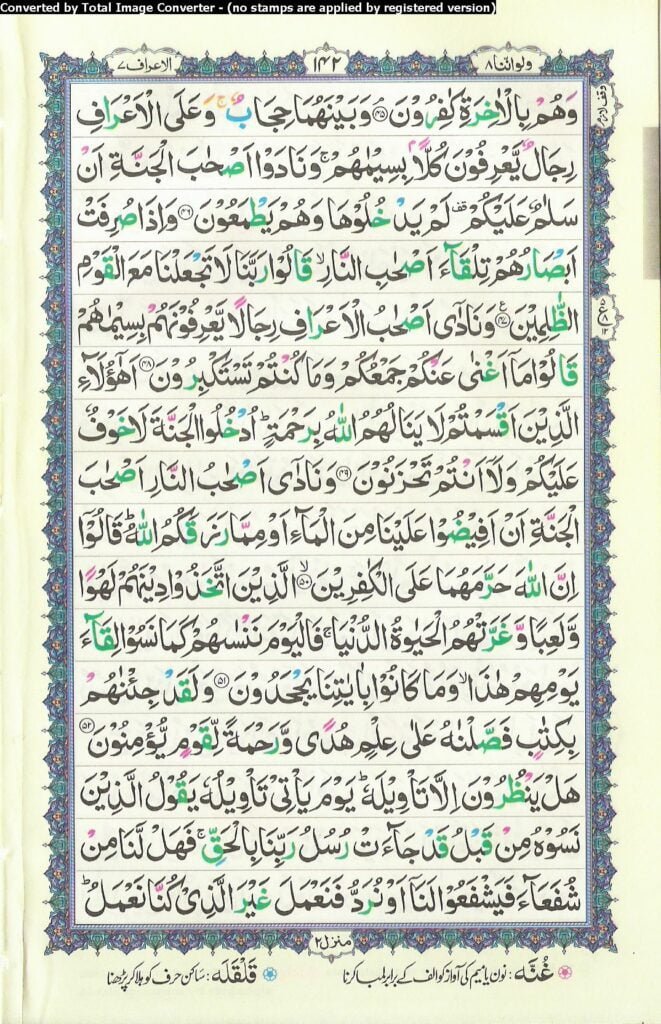 Converted by Total Image Converter - (no stamps are applied by registered version)
ولواننا ٨
١٤٢
الاعراف ٧
وَهُمْ بِالْاٰخِرَةِ كٰفِرُوْنَ ﴿٤٥﴾ وَبَيْنَهُمَا حِجَابٌ ۚ وَعَلَى الْاَعْرَافِ
رِجَالٌ يَّعْرِفُوْنَ كُلًّاۢ بِسِيْمٰىهُمْ ۚ وَنَادَوْا اَصْحٰبَ الْجَنَّةِ اَنْ
سَلٰمٌ عَلَيْكُمْ ۟ لَمْ يَدْخُلُوْهَا وَهُمْ يَطْمَعُوْنَ ﴿٤٦﴾ وَاِذَا صُرِفَتْ
اَبْصَارُهُمْ تِلْقَآءَ اَصْحٰبِ النَّارِ ۙ قَالُوْا رَبَّنَا لَا تَجْعَلْنَا مَعَ الْقَوْمِ
الظّٰلِمِيْنَ ﴿٤٧﴾ وَنَادٰٓى اَصْحٰبُ الْاَعْرَافِ رِجَالًا يَّعْرِفُوْنَهُمْ بِسِيْمٰىهُمْ
قَالُوْا مَآ اَغْنٰى عَنْكُمْ جَمْعُكُمْ وَمَا كُنْتُمْ تَسْتَكْبِرُوْنَ ﴿٤٨﴾ اَهٰٓؤُلَآءِ
الَّذِيْنَ اَقْسَمْتُمْ لَا يَنَالُهُمُ اللّٰهُ بِرَحْمَةٍ ؕ اُدْخُلُوا الْجَنَّةَ لَا خَوْفٌ
عَلَيْكُمْ وَلَآ اَنْتُمْ تَحْزَنُوْنَ ﴿٤٩﴾ وَنَادٰٓى اَصْحٰبُ النَّارِ اَصْحٰبَ
الْجَنَّةِ اَنْ اَفِيْضُوْا عَلَيْنَا مِنَ الْمَآءِ اَوْ مِمَّا رَزَقَكُمُ اللّٰهُ ؕ قَالُوْٓا
اِنَّ اللّٰهَ حَرَّمَهُمَا عَلَى الْكٰفِرِيْنَ ﴿٥٠﴾ ۙ الَّذِيْنَ اتَّخَذُوْا دِيْنَهُمْ لَهْوًا
وَّلَعِبًا وَّغَرَّتْهُمُ الْحَيٰوةُ الدُّنْيَا ۚ فَالْيَوْمَ نَنْسٰىهُمْ كَمَا نَسُوْا لِقَآءَ
يَوْمِهِمْ هٰذَا ۙ وَمَا كَانُوْا بِاٰيٰتِنَا يَجْحَدُوْنَ ﴿٥١﴾ وَلَقَدْ جِئْنٰهُمْ
بِكِتٰبٍ فَصَّلْنٰهُ عَلٰى عِلْمٍ هُدًى وَّرَحْمَةً لِّقَوْمٍ يُّؤْمِنُوْنَ ﴿٥٢﴾
هَلْ يَنْظُرُوْنَ اِلَّا تَاْوِيْلَهٗ ؕ يَوْمَ يَاْتِيْ تَاْوِيْلُهٗ يَقُوْلُ الَّذِيْنَ
نَسُوْهُ مِنْ قَبْلُ قَدْ جَآءَتْ رُسُلُ رَبِّنَا بِالْحَقِّ ۚ فَهَلْ لَّنَا مِنْ
شُفَعَآءَ فَيَشْفَعُوْا لَنَآ اَوْ نُرَدُّ فَنَعْمَلَ غَيْرَ الَّذِيْ كُنَّا نَعْمَلُ ؕ
منزل ٢
غُنَّه : نون یا میم کی آواز کو الف کے برابر لمبا کرنا
قَلْقَلَه : ساکن حرف کو ہلا کر پڑھنا